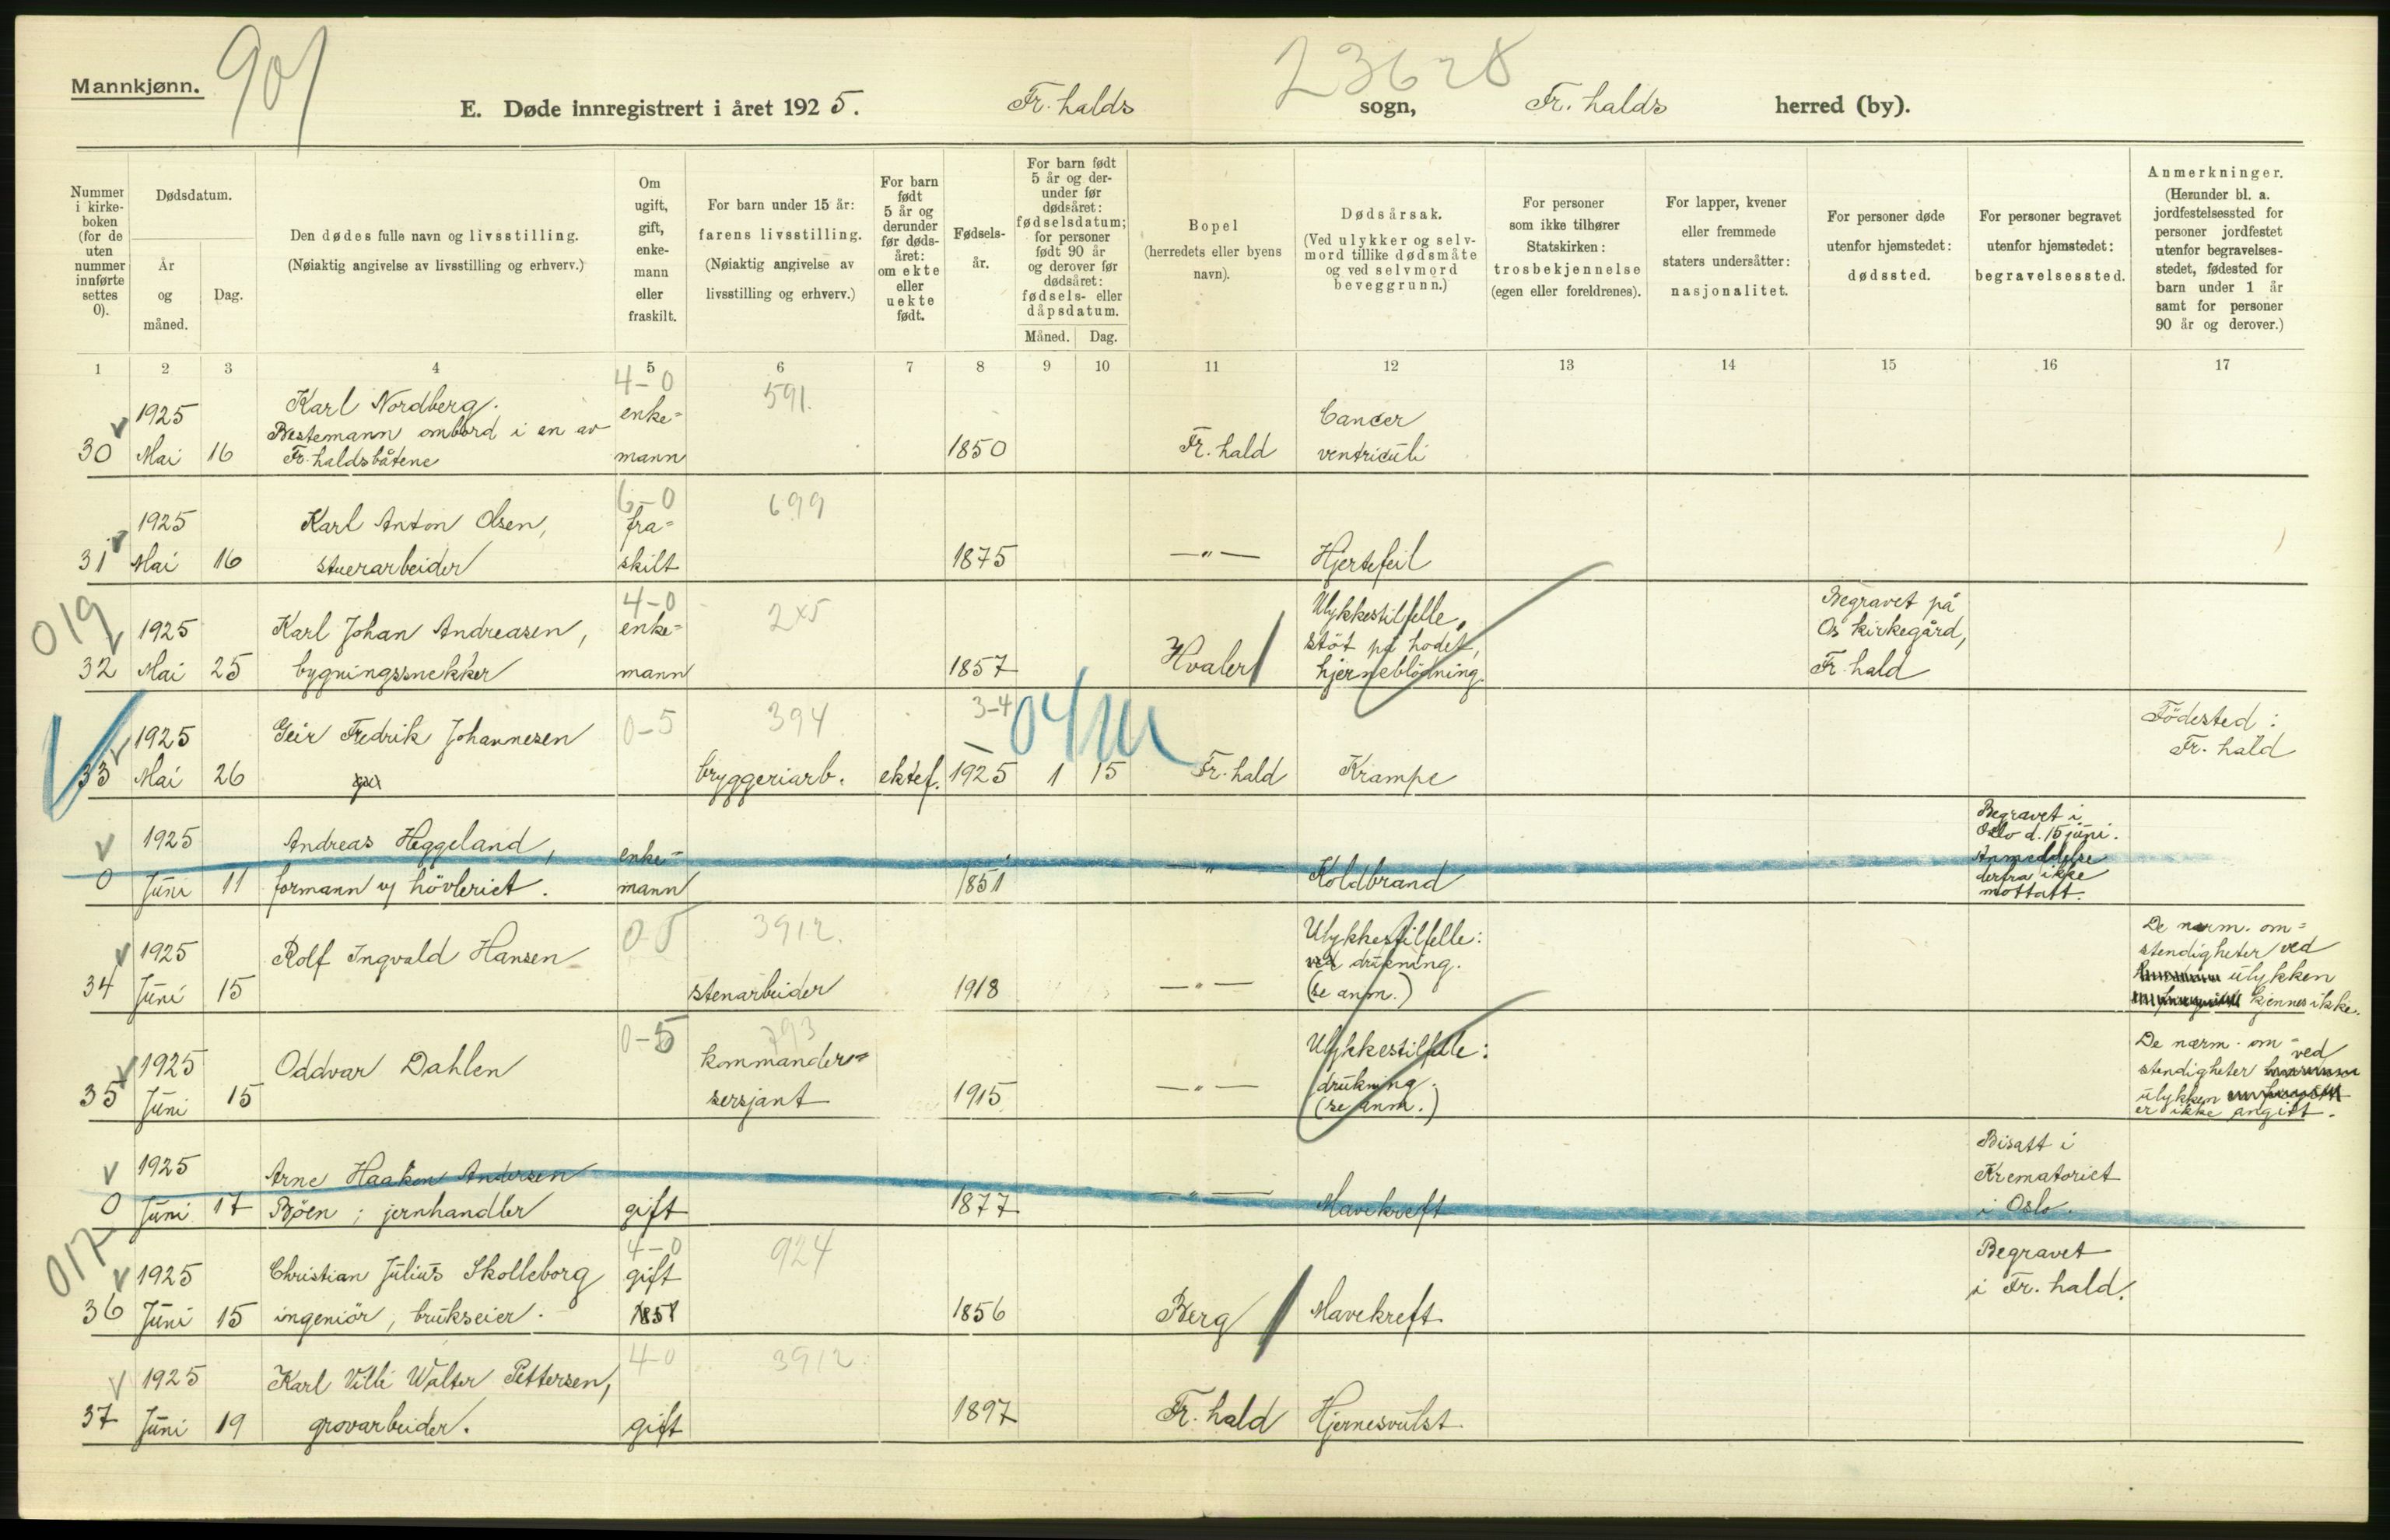 Mannkjønn.
901
23628
E. Døde innregistrert i året 1925. Fr. halds sogn, Fr. halds herred (by).
Nummer i kirkeboken (for de uten nummer innførte settes 0).
Dødsdatum.
År og måned.
Dag.
Den dødes fulle navn og livsstilling.
(Nøiaktig angivelse av livsstilling og erhverv.)
Om ugift, gift, enkemann eller fraskilt.
For barn under 15 år:
farens livsstilling.
(Nøiaktig angivelse av livsstilling og erhverv.)
For barn født 5 år og derunder før dødsåret: om ekte eller uekte født.
Fødselsår.
For barn født 5 år og derunder før dødsåret: fødselsdatum; for personer født 90 år og derover før dødsåret: fødsels- eller dåpsdatum.
Måned. Dag.
Bopel
(herredets eller byens navn).
Dødsårsak.
(Ved ulykker og selvmord tillike dødsmåte og ved selvmord beveggrunn.)
For personer som ikke tilhører Statskirken: trosbekjennelse (egen eller foreldrenes).
For lapper, kvener eller fremmede staters undersåtter: nasjonalitet.
For personer døde utenfor hjemstedet: dødssted.
For personer begravet utenfor hjemstedet: begravelsessted.
Anmerkninger.
(Herunder bl. a. jordfestelsessted for personer jordfestet utenfor begravelsesstedet, fødested for barn under 1 år samt for personer 90 år og derover.)
1 2 3 4 5 6 7 8 9 10 11 12 13 14 15 16 17
4-0 591.
1925 Karl Nordberg. enke= Cancer
Bestemann ombord i en av
30 Mai 16 Fr. haldsbåtene mann 1850 Fr. hald ventriculi
6-0 699
1925 Karl Anton Olsen, fra=
31 Mai 16 stuerarbeider skilt 1875 —"— Hjertefeil
019 4-0 2x5
1925 Karl Johan Andreasen, enke= Ulykkestilfelle, Begravet på
støt på hodet, Os kirkegård,
32 Mai 25 bygningssnekker mann 1857 Hvaler hjerneblödning. Fr. hald
0-5 394 3-4
1925 Geir Fredrik Johannesen Födested:
Fr. hald
33 Mai 26 bryggeriarb. ektef. 1925 1 15 Fr. hald Krampe
1925 Andreas Heggeland, enke= Begravet i
Oslo d. 15 juni.
Anmeldelse
0 Juni 11 formann v høvleriet. mann 1851 —"— Koldbrand derfra ikke
mottatt.
3912.
1925 Rolf Ingvald Hansen Ulykkestilfelle: De nærm. om=
ved drukning. stendigheter ved
ulykken
34 Juni 15 stenarbeider 1918 —"— (se anm.) kjennes ikke.
0-5 793
1925 Oddvar Dahlen kommander= Ulykkestilfelle: De nærm. om=
drukning. stendigheter ved
35 Juni 15 sersjant 1915 —"— (se anm.) ulykken
er ikke angitt.
1925 Arne Haakon Andersen Bisatt i
Krematoriet
0 Juni 17 Bøen; jernhandler gift 1877 —"— Mavekreft i Oslo.
017 4-0 924
1925 Christian Julius Skolleborg gift Begravet
36 Juni 15 ingeniör, brukseier. 1856 Berg Mavekreft. i Fr. hald.
4-0 3912
1925 Karl Villi Walter Pettersen,
37 Juni 19 grovarbeider. gift 1897 Fr. hald Hjernesvulst